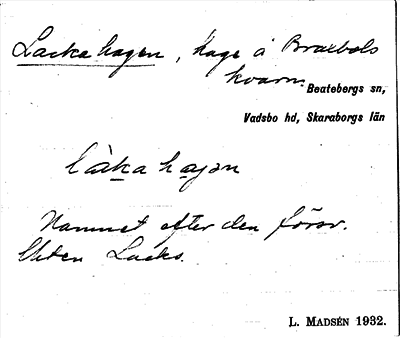 Lackahagen, hage å Braxbols
kvarn.
Beatebergs sn,
Vadsbo hd, Skaraborgs län
làkahagən
Namnet efter den försv.
Lacks.
L. MADSÉN 1932.